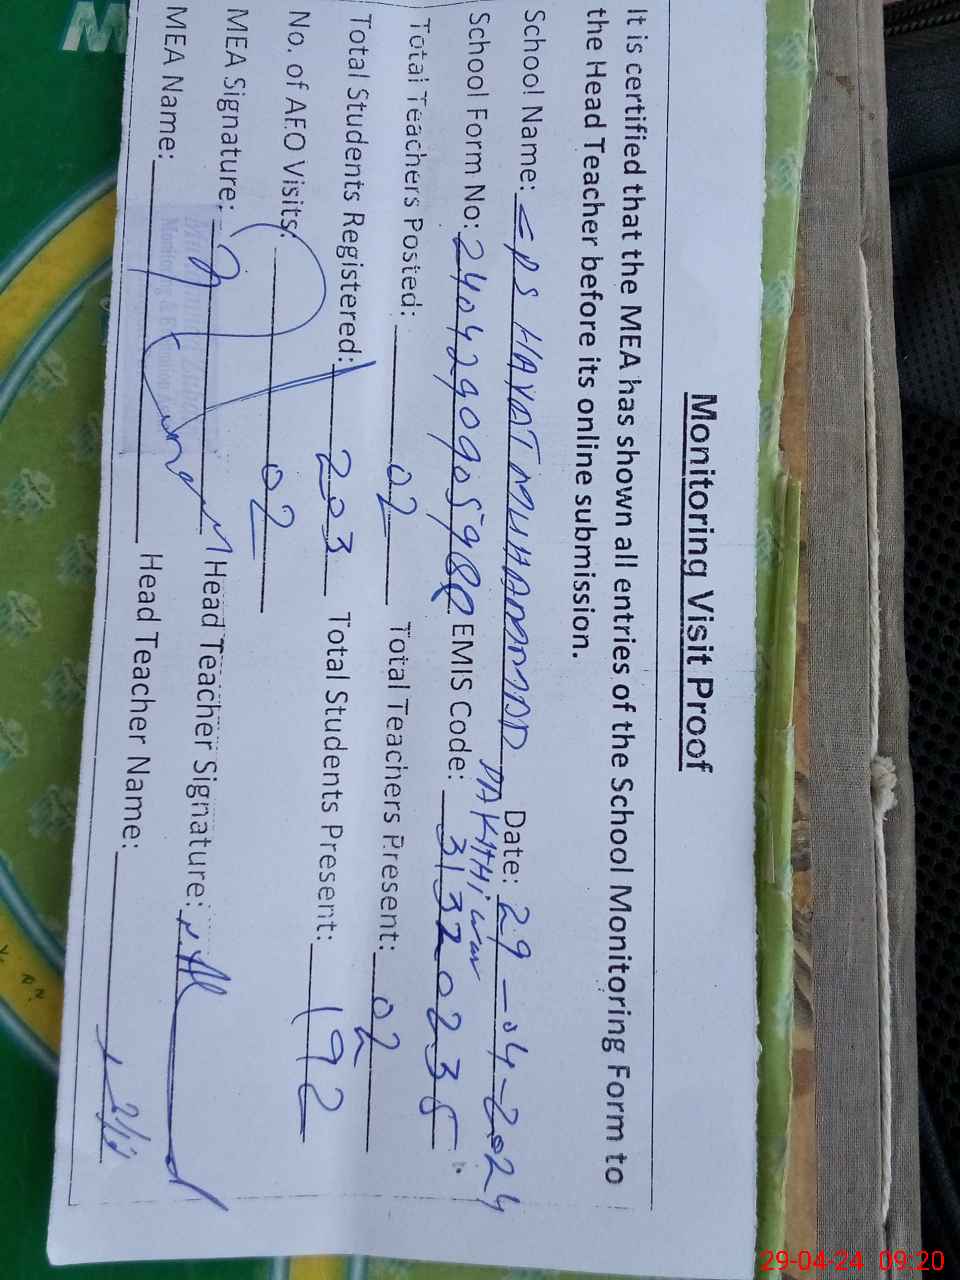 Monitoring Visit Proof
It is certified that the MEA has shown all entries of the School Monitoring Form to
the Head Teacher before its online submission.
School Name: GPS HAYAT MUHAMMAD Date: 29-04-2024
School Form No: EMIS Code: 31320235
Total Teachers Posted: 02 Total Teachers Present: 02
Total Students Registered: 203 Total Students Present: 192
No. of AEO Visits: 02
MEA Signature: Head Teacher Signature:
MEA Name: Head Teacher Name:
29-04-24 09:20